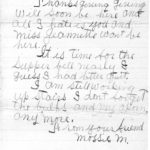 Thanksgiving
will soon be here and
all I hate is you and
miss Jeannette wont be
here.
It is time for the
supper bell now so I
guess I had better
I am still working
up stairs I don't
the bells and my
any more.
From your friend
Mossie M.